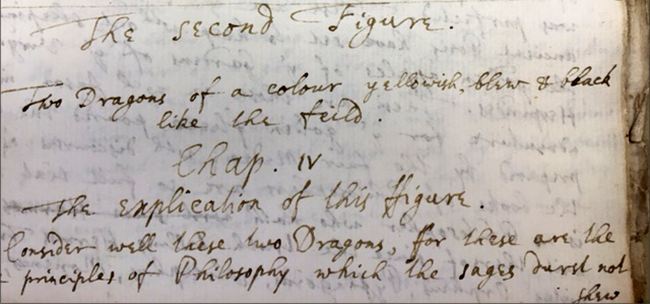 The second Figure.
Two Dragons of a colour yellowish, blew & black
like the feild.
Chap. IV
The explication of this ffigure.
Consider well these two Dragons, for these are the
principles of Philosophy which the sages durst not
shew